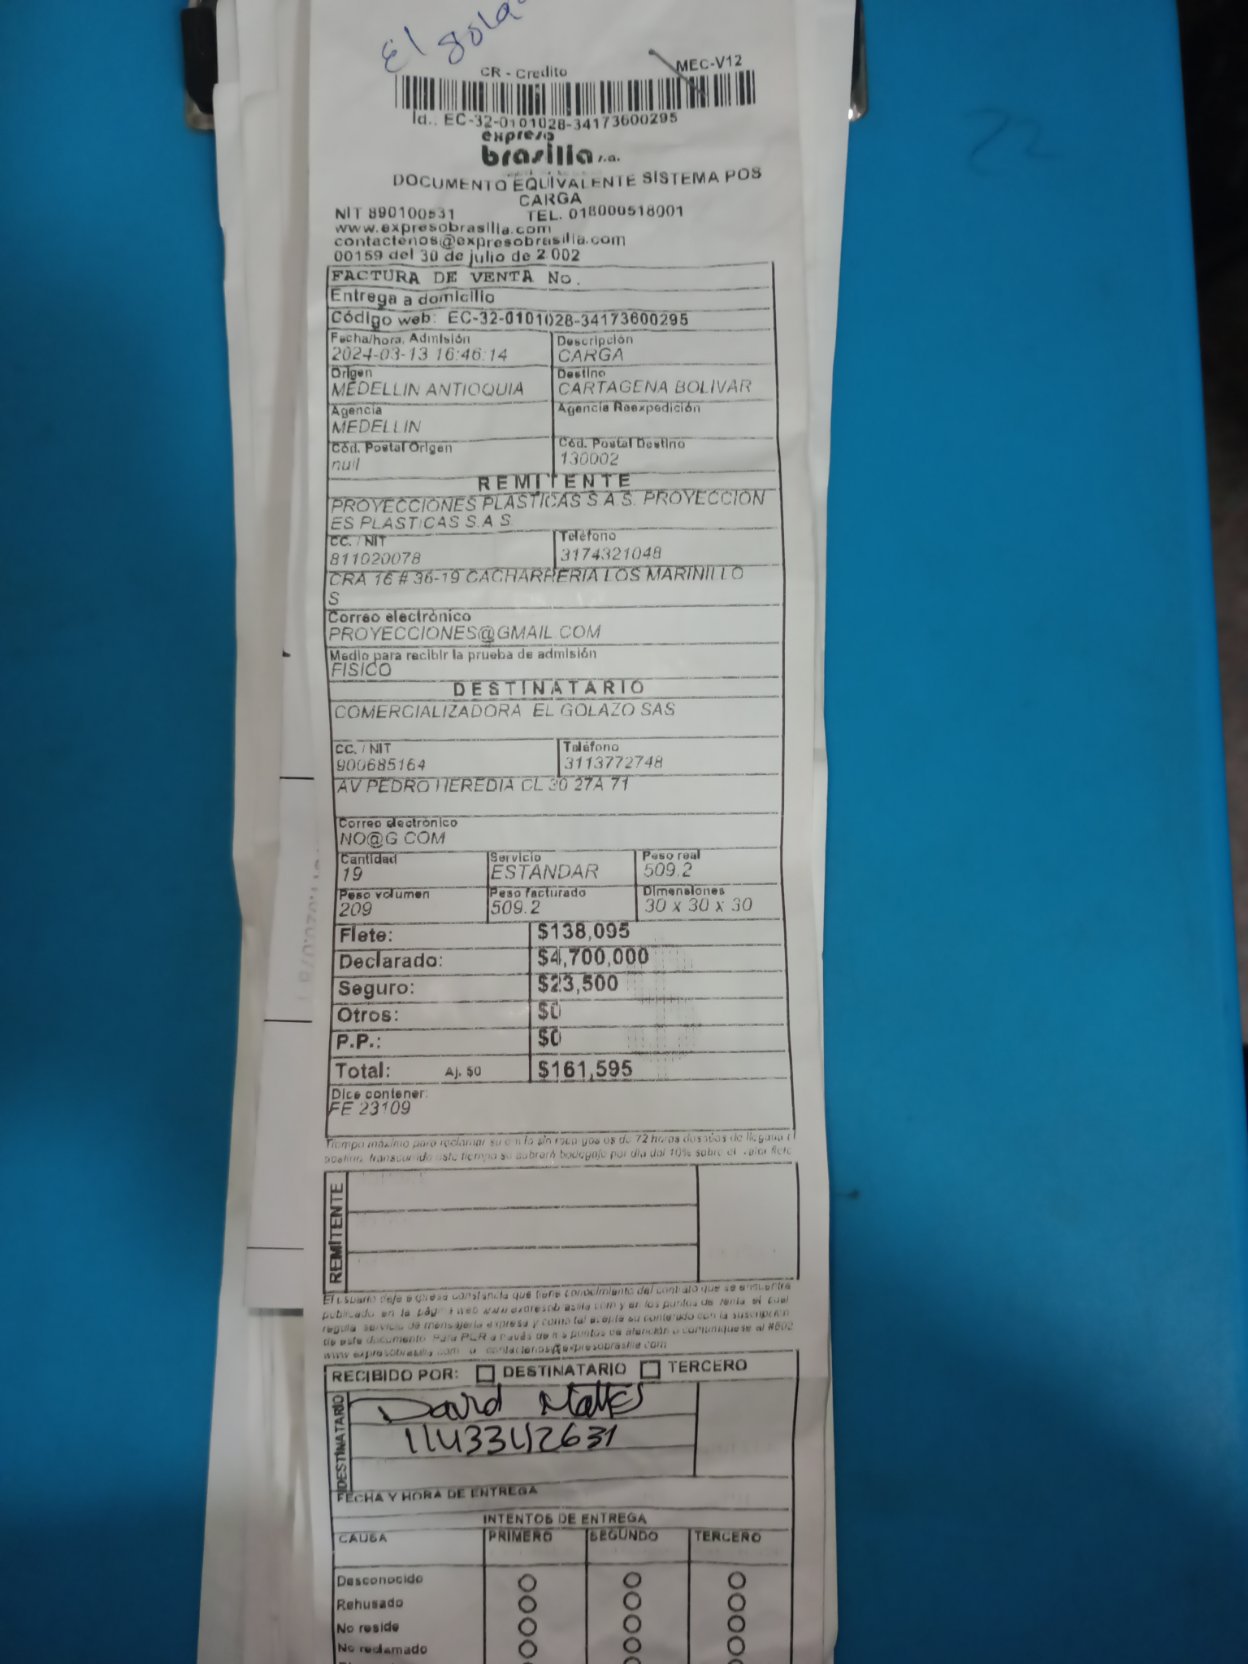 El gola
CR - Credito
MEC-V12
Id.. EC-32-0101028-34173600295
expreso
brasilia s.a.
DOCUMENTO EQUIVALENTE SISTEMA POS
CARGA
NIT 890100531 TEL. 018000518001
www.expresobrasilia.com
contactenos@expresobrasilia.com
00159 del 30 de julio de 2.002
FACTURA DE VENTA No.
Entrega a domicilio
Código web: EC-32-0101028-34173600295
Fecha/hora. Admisión Descripción
2024-03-13 16:46:14 CARGA
Origen Destino
MEDELLIN ANTIOQUIA CARTAGENA BOLIVAR
Agencia Agencia Reexpedición
MEDELLIN
Cód. Postal Origen Cód. Postal Destino
null 130002
REMITENTE
PROYECCIONES PLASTICAS S.A.S. PROYECCION
ES PLASTICAS S.A.S.
CC. / NIT Teléfono
811020078 3174321048
CRA 16 # 36-19 CACHARRERIA LOS MARINILLO
S
Correo electrónico
PROYECCIONES@GMAIL.COM
Medio para recibir la prueba de admisión
FISICO
DESTINATARIO
COMERCIALIZADORA EL GOLAZO SAS
CC. / NIT Teléfono
900685164 3113772748
AV PEDRO HEREDIA CL 30 27A 71
Correo electrónico
NO@G.COM
Cantidad Servicio Peso real
19 ESTANDAR 509.2
Peso volumen Peso facturado Dimensiones
209 509.2 30 x 30 x 30
Flete: $138,095
Declarado: $4,700,000
Seguro: $23,500
Otros: $0
P.P.: $0
Total: Aj. $0 $161,595
Dice contener:
FE 23109
Tiempo máximo para reclamar su de 72 horas de llegada
transcurrido este tiempo se cobrará bodegaje por día del 10% sobre el valor flete
REMITENTE
El usuario deja expresa constancia que tiene conocimiento del contrato que se encuentra
publicado en la página web www.expresobrasilia.com y en los puntos de venta el cual
regula servicio de mensajería expresa y como tal acepta su contenido con la suscripción
de este documento. Para PQR a través de puntos de atención o comuníquese al #502
www.expresobrasilia.com o contactenos@expresobrasilia.com
RECIBIDO POR: DESTINATARIO TERCERO
DESTINATARIO
David
1143342631
FECHA Y HORA DE ENTREGA
INTENTOS DE ENTREGA
CAUSA PRIMERO SEGUNDO TERCERO
Desconocido
Rehusado
No reside
No reclamado